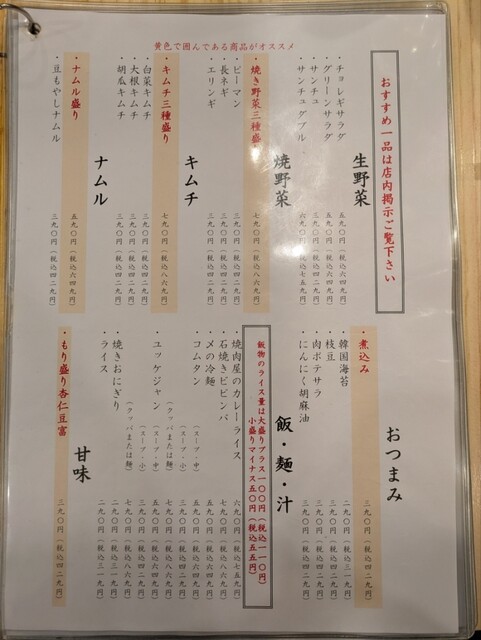 黄色で囲んである商品がオススメ
おすすめ一品は店内掲示ご覧下さい
生野菜
・チョレギサラダ 五九〇円(税込六四九円)
・グリーンサラダ 五九〇円(税込六四九円)
・サンチュ 三九〇円(税込四二九円)
・サンチュダブル 六九〇円(税込七五九円)
焼野菜
・焼き野菜三種盛り 七九〇円(税込八六九円)
・ピーマン 三九〇円(税込四二九円)
・長ネギ 三九〇円(税込四二九円)
・エリンギ 三九〇円(税込四二九円)
キムチ
・キムチ三種盛り 七九〇円(税込八六九円)
・白菜キムチ 三九〇円(税込四二九円)
・大根キムチ 三九〇円(税込四二九円)
・胡瓜キムチ 三九〇円(税込四二九円)
ナムル
・ナムル盛り 五九〇円(税込六四九円)
・豆もやしナムル 三九〇円(税込四二九円)
おつまみ
・煮込み 三九〇円(税込四二九円)
・韓国海苔 二九〇円(税込三一九円)
・枝豆 三九〇円(税込四二九円)
・肉ポテサラ 三九〇円(税込四二九円)
・にんにく胡麻油 三九〇円(税込四二九円)
飯・麺・汁
飯物のライス量は大盛りプラス一〇〇円(税込一一〇円)
小盛りマイナス五〇円(税込五五円)
・焼肉屋のカレーライス 六九〇円(税込七五九円)
・石焼きビビンバ 七九〇円(税込八六九円)
・〆の冷麺 五九〇円(税込六四九円)
・コムタン (スープ・中) 五九〇円(税込六四九円)
(スープ・小) 三九〇円(税込四二九円)
(クッパまたは麺) 七九〇円(税込八六九円)
・ユッケジャン (スープ・中) 五九〇円(税込六四九円)
(スープ・小) 三九〇円(税込四二九円)
(クッパまたは麺) 七九〇円(税込八六九円)
・焼きおにぎり 二九〇円(税込三一九円)
・ライス 二九〇円(税込三一九円)
甘味
・もり盛り杏仁豆富 三九〇円(税込四二九円)